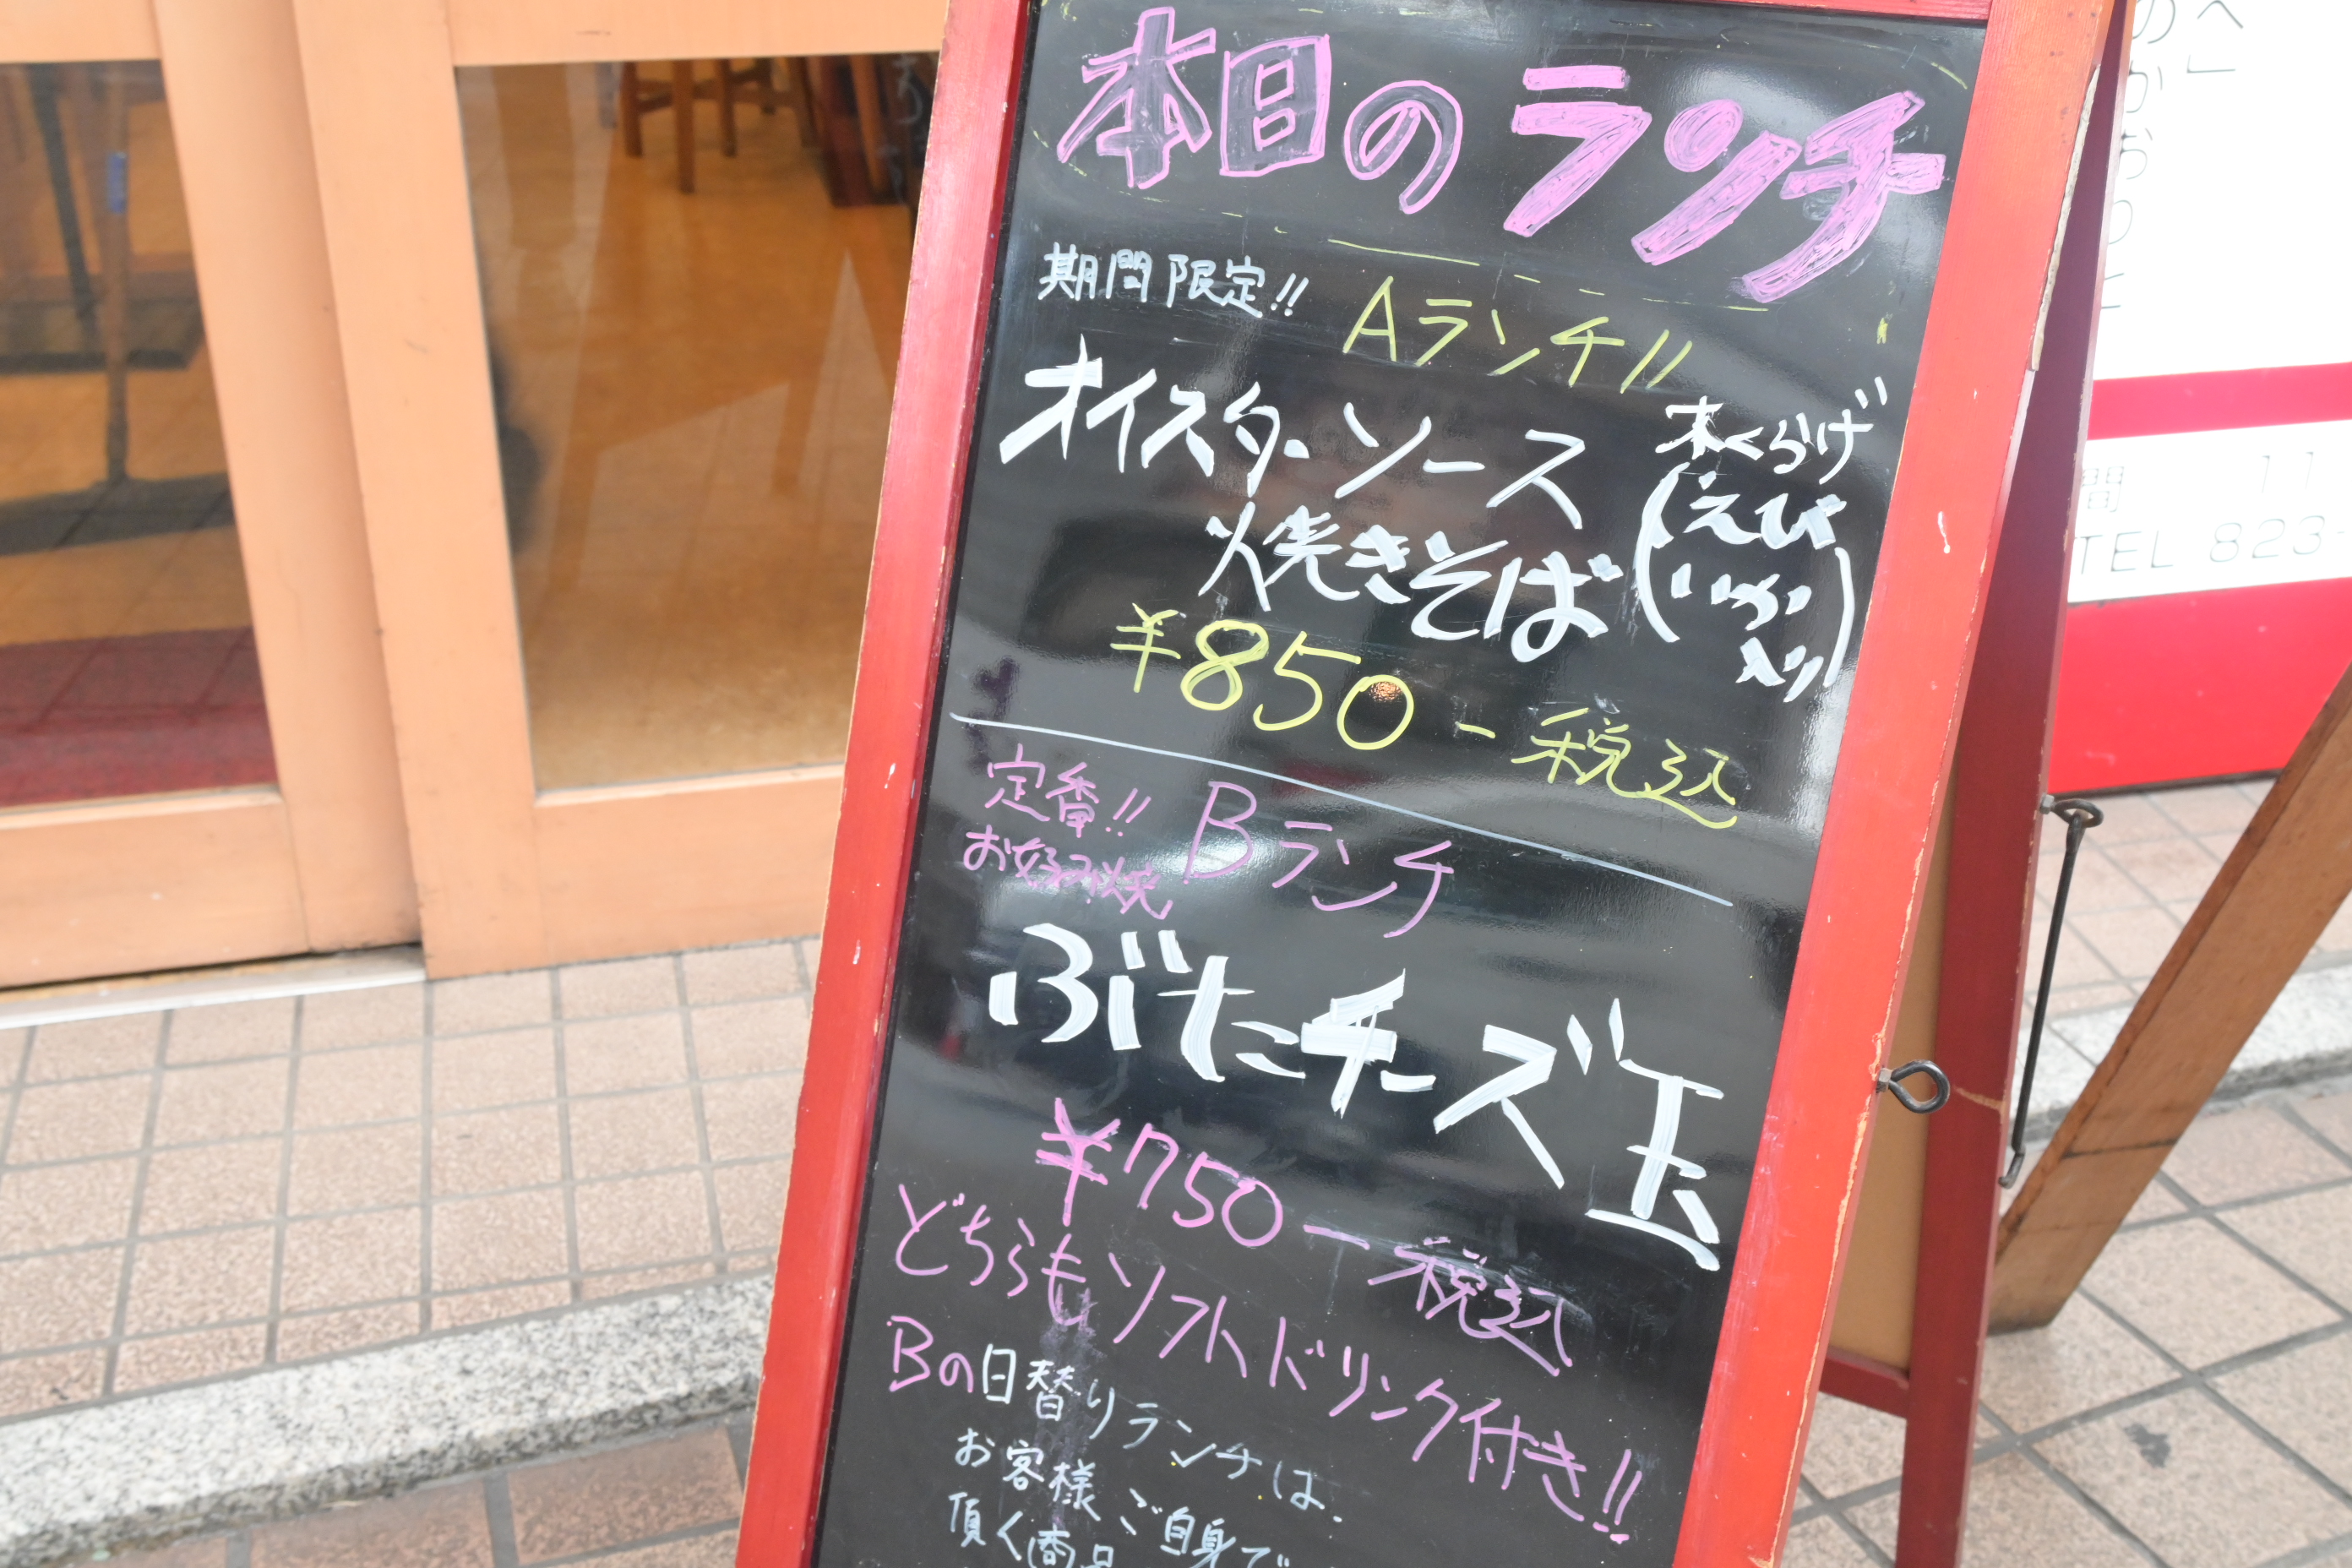 本日のランチ
期間限定!!
Aランチ!!
オイスターソース
焼きそば
木くらげ
(えび
いか
入り)
¥850-税込
定番!!
お好み焼
Bランチ
ぶたチーズ玉
¥750-税込
どちらもソフトドリンク付き!!
Bの日替りランチは、
お客様ご自身で
頂く商品
間 11
TEL 823-